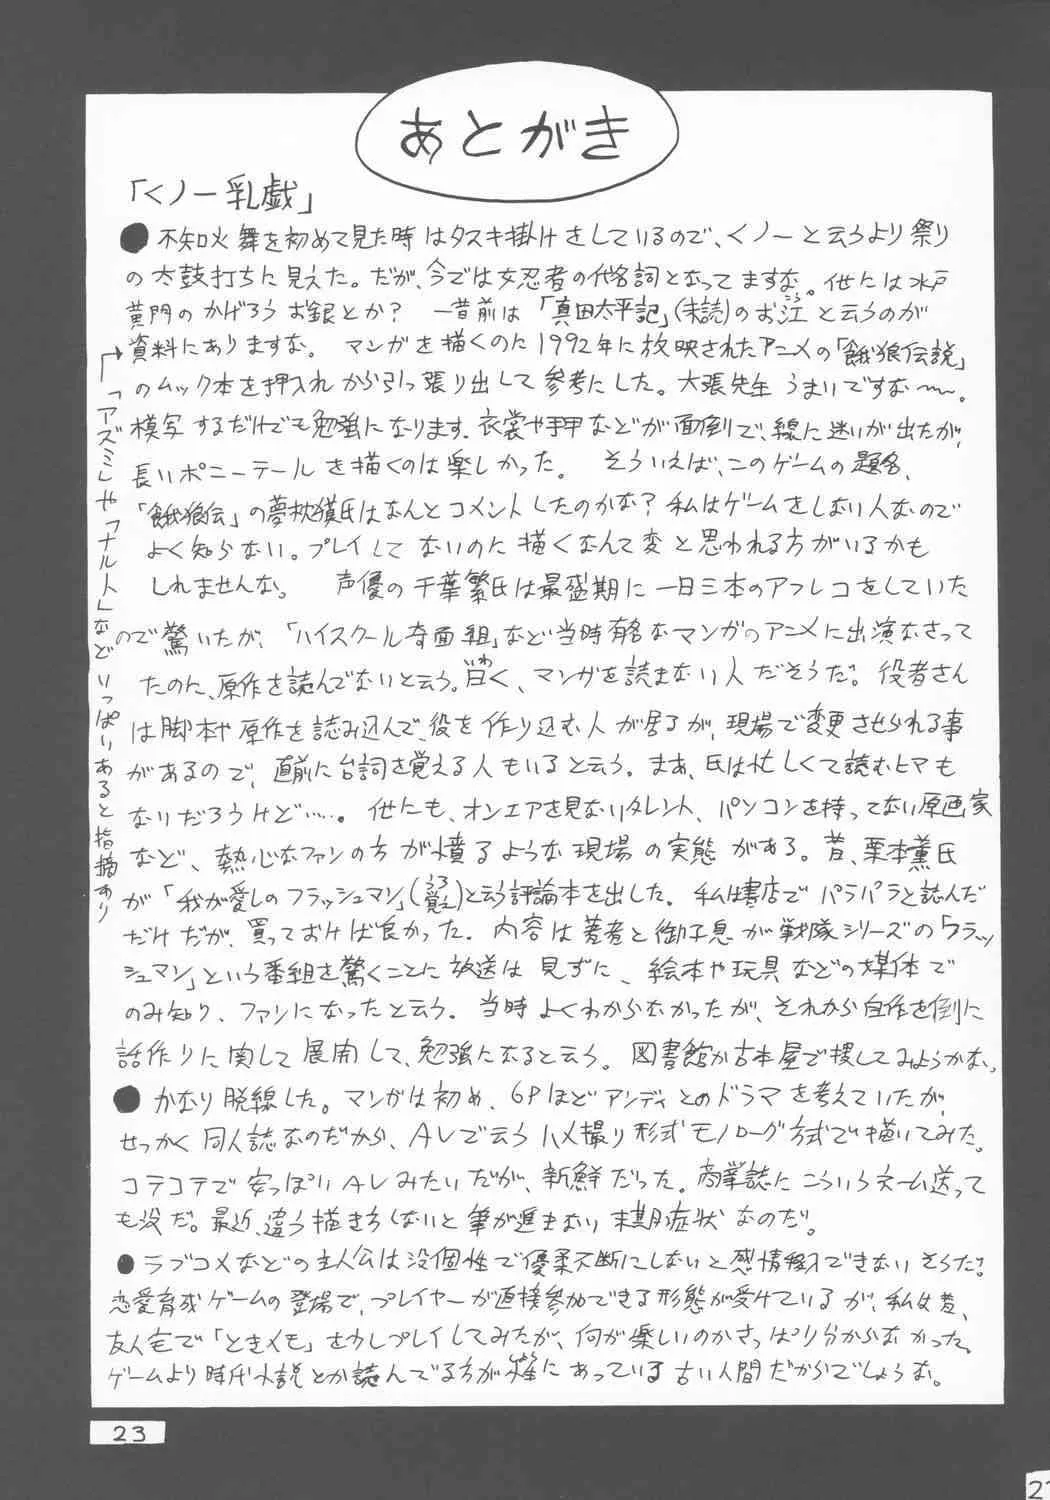 あとがき
「くノ一乳戯」
● 不知火舞を初めて見た時はタスキ掛けをしているので、くノ一と云うより祭り
の太鼓打ちに見えた。だが、今では女忍者の代名詞となってますな。他には水戸
黄門のかげろうお銀とか? 一昔前は「真田太平記」(未読)のお江と云うのが
こう
資料にありますな。 マンガを描くのに1992年に放映されたアニメの「餓狼伝説」
のムック本を押入れから引っ張り出して参考にした。大張先生うまいですな〜〜。
模写するだけでも勉強になります。衣裳や手甲などが面倒で、線に迷いが出たが、
長いポニーテールを描くのは楽しかった。 そういえば、このゲームの題名、
「餓狼伝」の夢枕獏氏はなんとコメントしたのかな? 私はゲームをしない人なので
よく知らない。プレイしてないのに描くなんて変と思われる方がいるかも
しれませんな。 声優の千葉繁氏は最盛期に一日三本のアフレコをしていた
ので驚いたが、「ハイスクール奇面組」など当時有名なマンガのアニメに出演なさって
たのに、原作を読んでないと云う。曰く、マンガを読まない人だそうだ。役者さん
いわ
は脚本や原作を読み込んで、役を作り込む人が居るが、現場で変更させられる事
があるので、直前に台詞を覚える人もいると云う。まあ、氏は忙しくて読むヒマも
ないだろうけど……。他にも、オンエアを見ないタレント、パソコンを持ってない原画家
など、熱心なファンの方が憤るような現場の実態がある。昔、栗本薫氏
が「我が愛しのフラッシュマン」(うろ覚え)と云う評論本を出した。私は書店でパラパラと読んだ
だけだが、買っておけば良かった。内容は著者と御子息が戦隊シリーズの「フラッ
シュマン」という番組を驚くことに放送は見ずに、絵本や玩具などの媒体で
のみ知り、ファンになったと云う。当時よくわからなかったが、それから自作を例に
話作りに関して展開して、勉強になると云う。図書館か古本屋で捜してみようかな。
● かなり脱線した。マンガは初め、6Pほどアンディとのドラマを考えていたが、
せっかく同人誌なのだから、AVで云うハメ撮り形式モノローグ方式で描いてみた。
コテコテで安っぽいAVみたいだが、新鮮だった。商業誌にこういうネーム送って
も没だ。最近、違う描き方しないと筆が進まない末期症状なのだ。
● ラブコメなどの主人公は没個性で優柔不断にしないと感情移入できないそうだ。
恋愛育成ゲームの登場で、プレイヤーが直接参加できる形態が受けているが、私は昔、
友人宅で「ときメモ」を少しプレイしてみたが、何が楽しいのかさっぱり分からなかった。
ゲームより時代小説とか読んでる方が性にあっている古い人間だからでしょうな。
「アズミ」や「ナルト」などいっぱいあると指摘あり
23